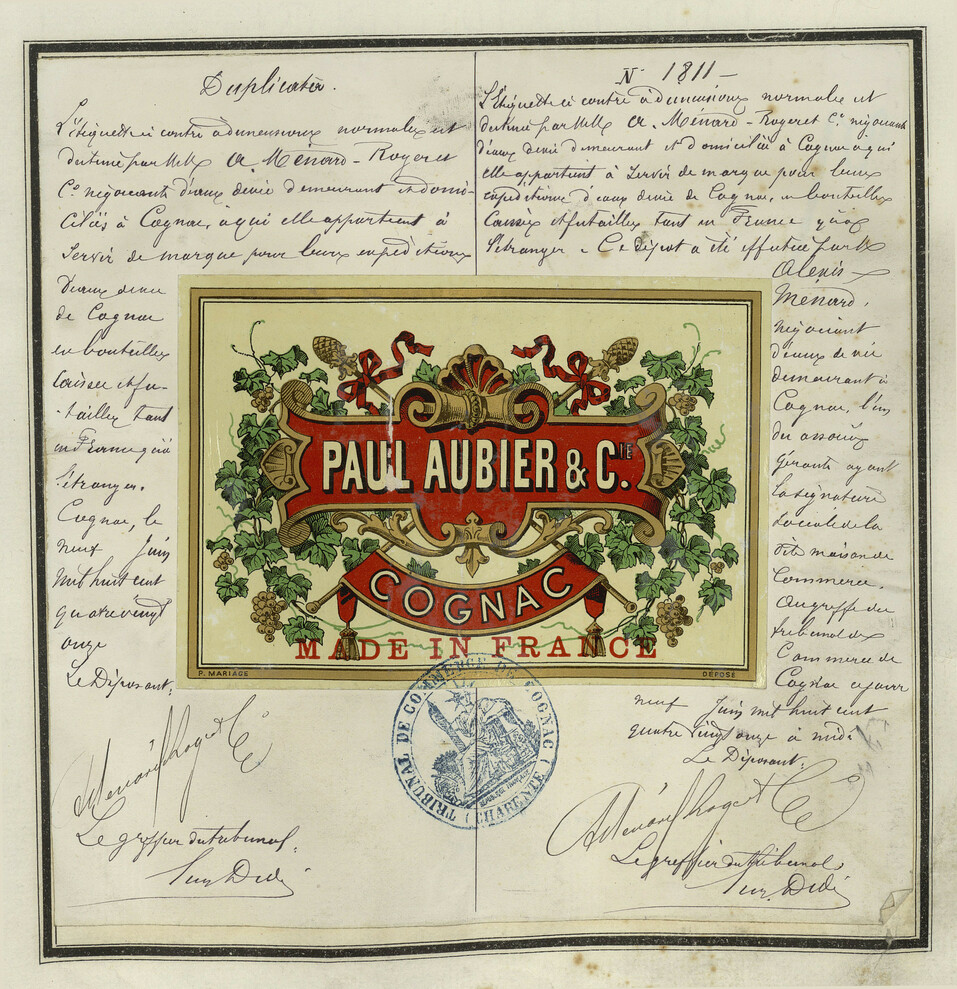 Duplicata.
L'étiquette ci contre à dimensions normales est
destinée par MM A Ménard-Royer et
Cie négociants d'eaux de vie demeurant et domi-
ciliés à Cognac, à qui elle appartient à
servir de marque pour leurs expéditions
d'eaux de vie
de Cognac
en bouteilles
caisses et fu-
-tailles tant
en France qu'à
l'étranger.
Cognac, le
neuf Juin
mil huit cent
quatre vingt
onze
Le Déposant:
Le greffier du tribunal.
N° 1811 —
L'étiquette ci contre à dimensions normales est
destinée par MM A. Ménard-Royer et Cie négociants
d'eaux de vie demeurant et domiciliés à Cognac à qui
elle appartient à servir de marque pour leurs
expéditions d'eaux de vie de Cognac, en bouteilles
caisses et futailles tant en France qu'à
l'étranger - Ce dépôt a été effectué par M
Alexis
Ménard,
négociant
d'eaux de vie
demeurant à
Cognac, l'un
des associés
gérants ayant
la signature
sociale de la
dite maison de
Commerce
au greffe du
tribunal de
Commerce de
Cognac ce jour
neuf Juin mil huit cent
quatre vingt onze à midi
Le Déposant:
Le greffier du tribunal
PAUL AUBIER & CIE.
COGNAC
MADE IN FRANCE
P. MARIAGE
DÉPOSÉ
TRIBUNAL DE COMMERCE DE COGNAC (CHARENTE)